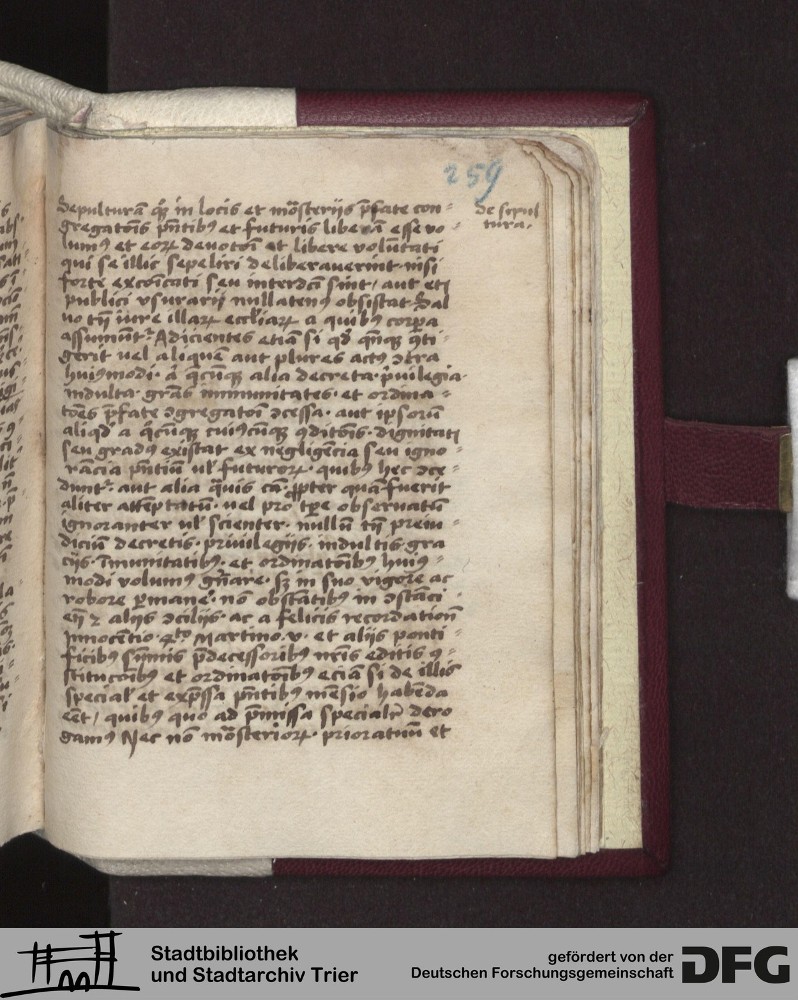 259
de sepul
tura.
Sepulturã qꝫ in locis et mõsterijs p̃fate con=
gregatõis p̃ntibꝰ et futuris liberã esse vo=
lumꝰ et eoꝝ deuotõi et libere volũtati
qui se illic sepeliri deliberauerint nisi
forte excõicati seu interdcĩ sint / aut etĩ
publici vsurarij nullatenꝰ obsistat Sal
uo tñ iure illaꝝ eccl̃iaꝝ a quibꝰ corp̃a
assumũt᷑ Adicientes etiã si qd̃ qñqꝫ ꝯti
gerit uel aliquẽ aut plures actꝰ ꝯtra
huiꝰmodi · a q̃cũqꝫ alia decreta · p̃uilegia
indulta gr̃as immunitates · et ordina=
tões p̃fate ꝯgregatoĩ ꝯcessa · aut ip̃sorũ
aliqd̃ a q̃cũqꝫ cuiꝰcũqꝫ ꝯditõis · dignitatꝭ
seu gradꝰ existat ex negligẽcia seu igno=
rãcia p̃ntiũ ul̃ futuroꝝ · quibꝰ hec ꝯce=
dunt᷑ · aut alia q̃uis cã · ꝓpter quã fuerit
aliter attẽptatũ · uel pro tp̃e obseruatũ
ignoranter ul̃ scienter · nullũ tñ preiu=
diciũ decretis · priuilegijs · indultis gra
cijs · Imunitatibꝰ · et ordinatõibꝰ huiꝰ=
modi volumꝰ gñare · sꝫ in suo vigore ac
robore p̲mane᷑ · nõ obstãtibꝰ in ꝯstãci
eñ ⁊ alijs ꝯcilijs · ac a felicis recordationꝭ
Innocẽtio · qr̃to Martino · v · et alijs ponti=
ficibꝰ sũmis p̃decessoribꝰ nr̃is editis ꝯ=
stitucõibꝰ et ordinatõibꝰ eciã si de illis
special̃ et exp̃ssa p̃ntibꝰ mẽsio habẽda
eẽt / quibꝰ quo ad p̃missa specialr̃ dero
gamꝰ Nec nõ mõsterioꝝ · prioratuũ et
Stadtbibliothek
und Stadtarchiv Trier
gefördert von der
Deutschen Forschungsgemeinschaft
DFG